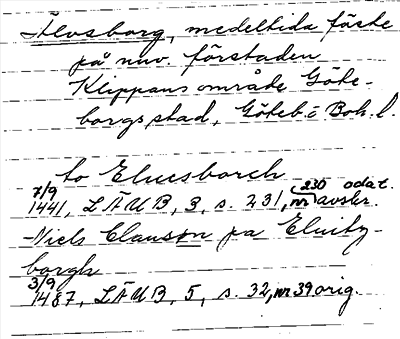 Älvsborg, medeltida fäste
på nuv. förstaden
Klippans område Göte-
borgs stad, Göteb. o Boh. l.
to Eluesborch
7/9 230 odat.
1441, LÄUB, 3, s. 231, nr avskr.
Niels Clauson pa Eluitz-
borgh
3/9
1487, LÄUB, 5, s. 32, nr 39 orig.